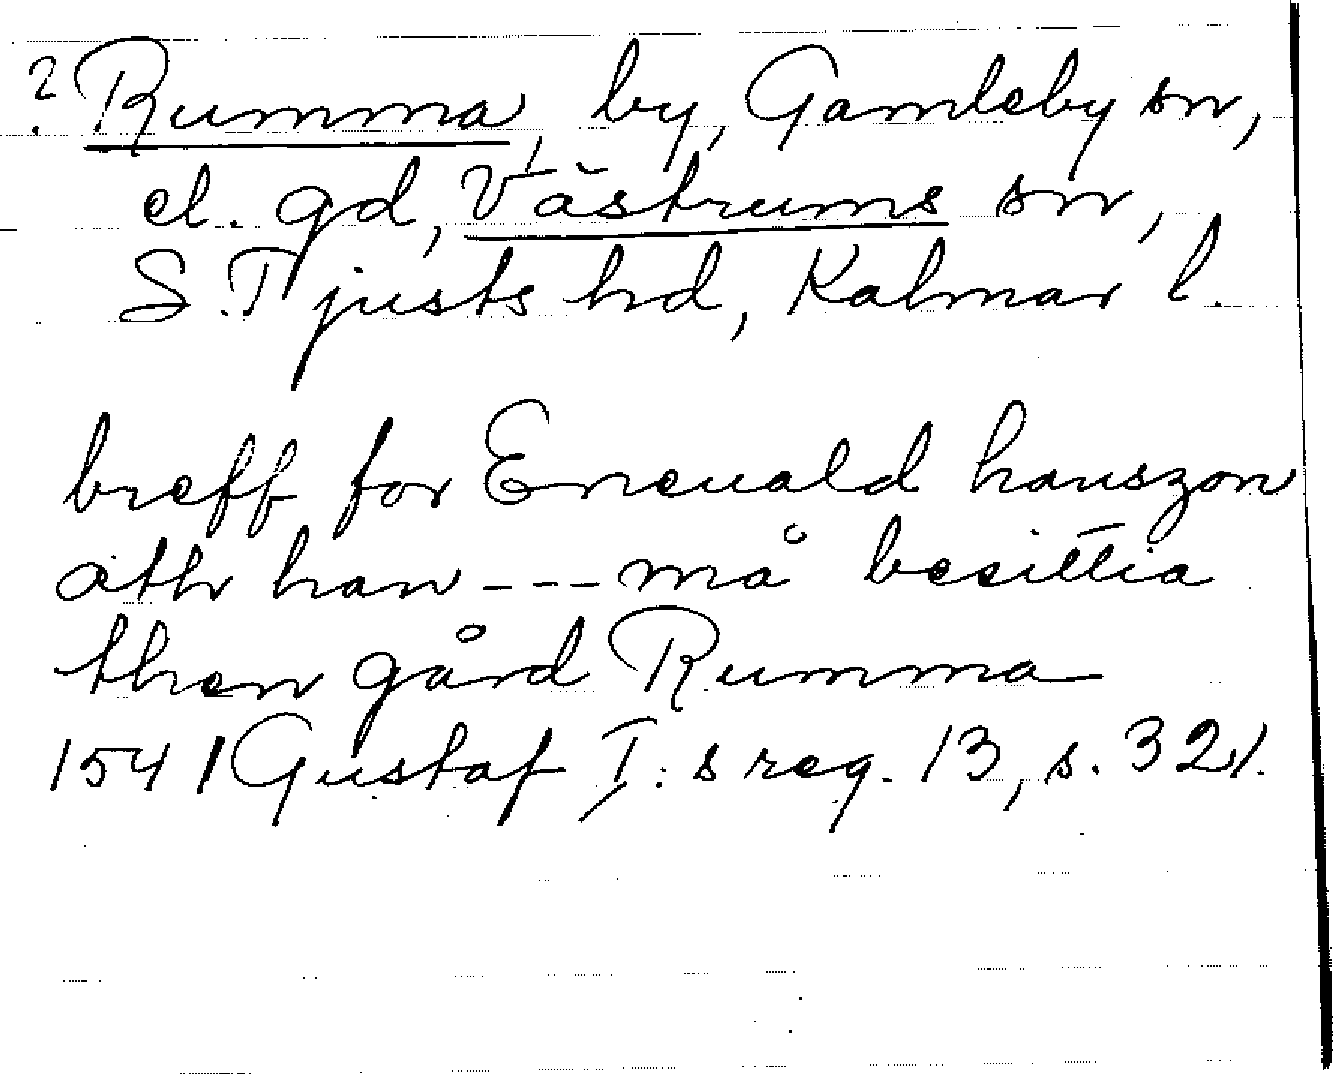 ? Rumma, by, Gamleby sn,
el. gd, Västrums sn,
S. Tjusts hd, Kalmar l.
breff for Eneuald hanszon
ath han --- må besittia
then gård Rumma
1541 Gustaf I:s reg. 13, s. 321.